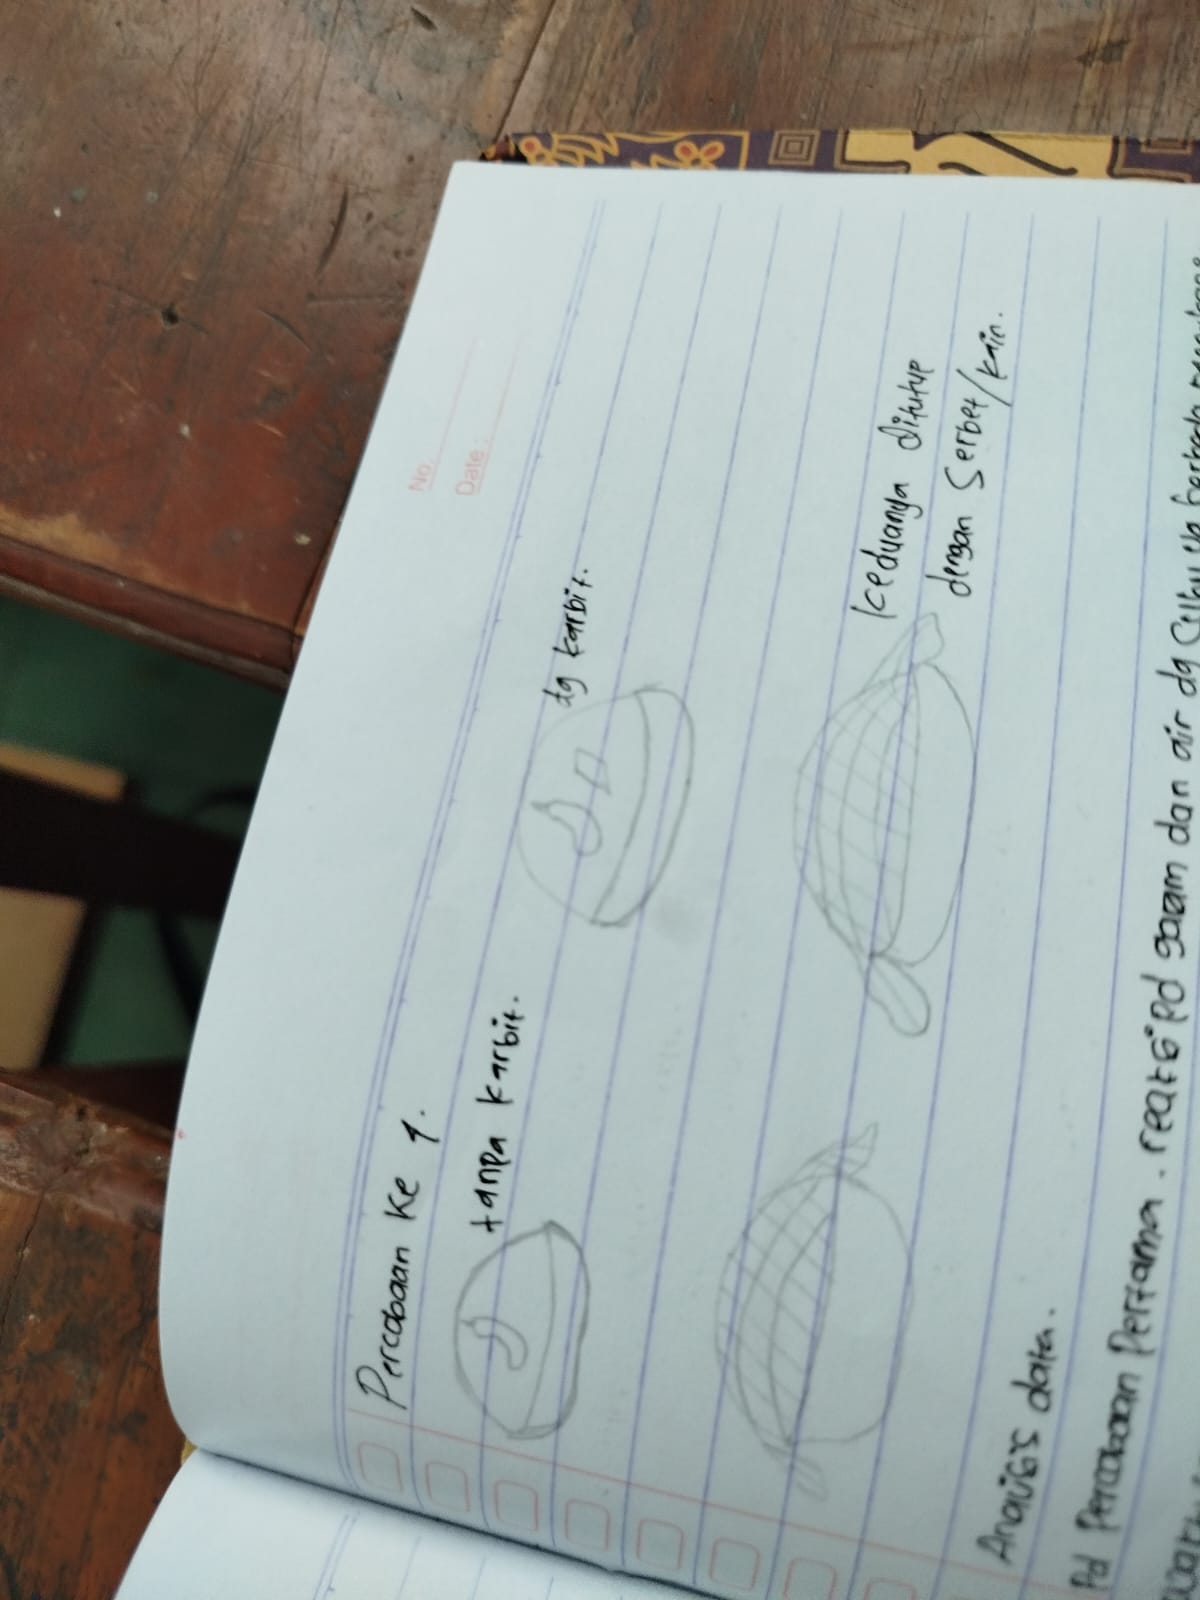 No.
Date:
Percobaan Ke 1.
tanpa karbit.
dg karbit.
Keduanya ditutup
dengan Serbet/kain.
Analisis data.
Pd Percobaan Pertama. reaksi Pd garam dan air dg Suhu yg berbeda